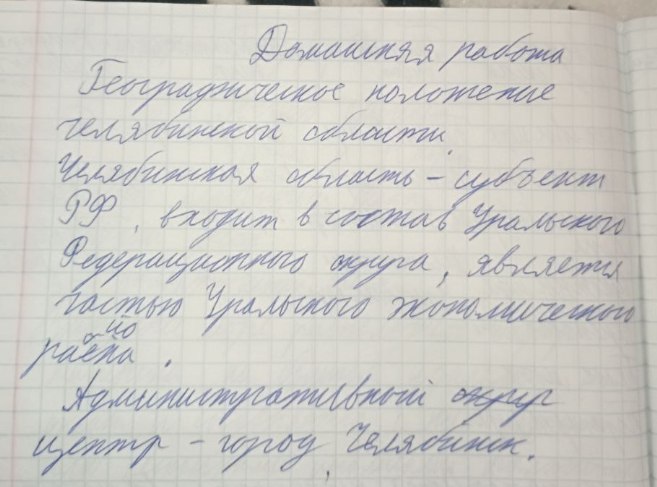 Домашняя работа
Географическое положение
челябинской области.
Челябинская область – субъект
РФ, входит в состав Уральского
Федерационного округа, является
частью Уральского экономического
район
Административный округ
центр – город Челябинск.